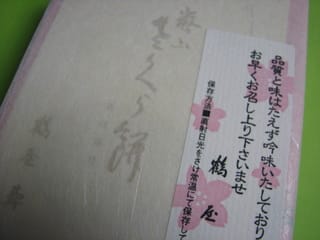 嵐山
さくら餅
鶴屋寿
品質と味はたえず吟味いたしており
お早くお召し上り下さいませ
保存方法■直射日光をさけ常温にて保存して
鶴屋